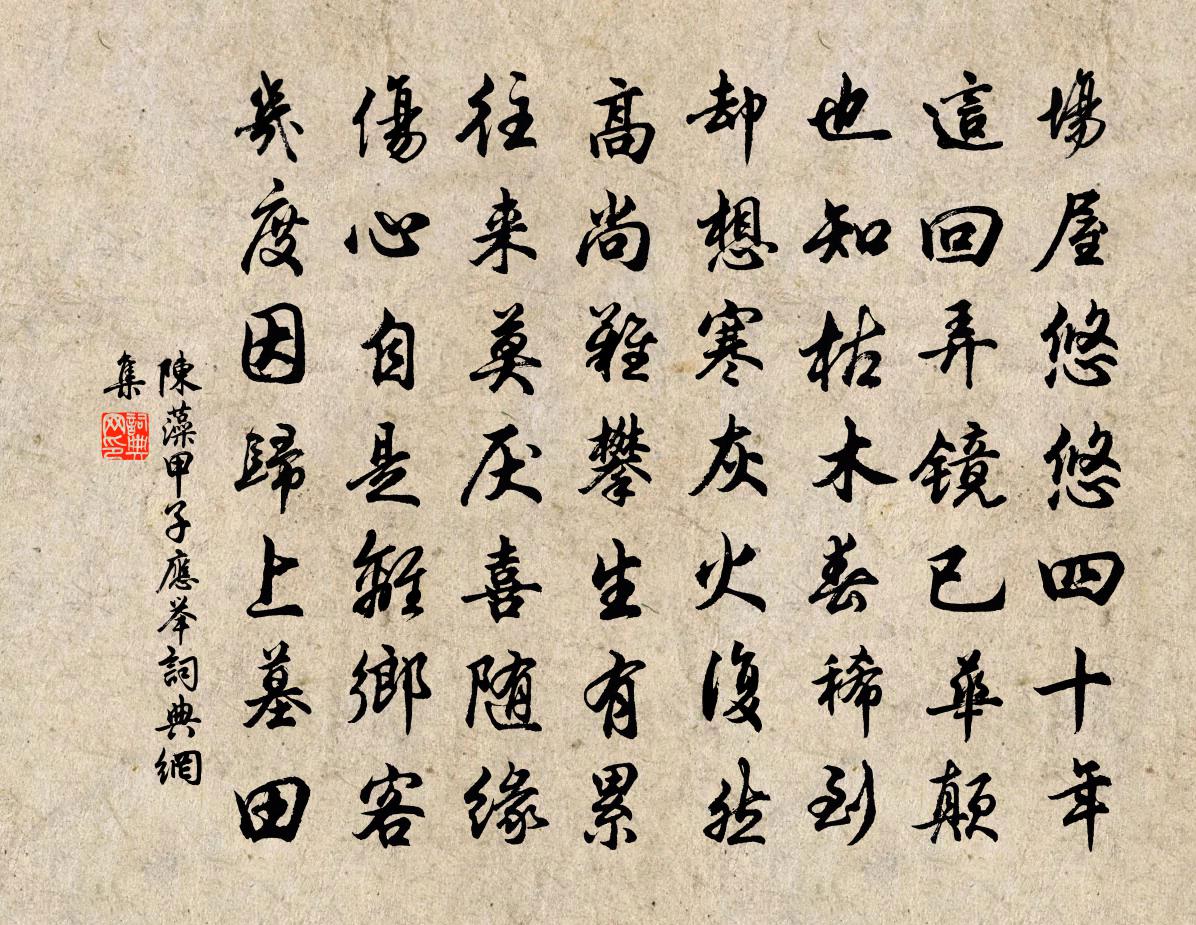 場屋悠悠四十年
這回弄镜已華顛
也知枯木春稀到
却想寒灰火復然
高尚難攀生有累
往来莫厌喜随緣
傷心自是離鄉客
幾度因歸上墓田
陳藻甲子應举詞典網
集
詞典
网印